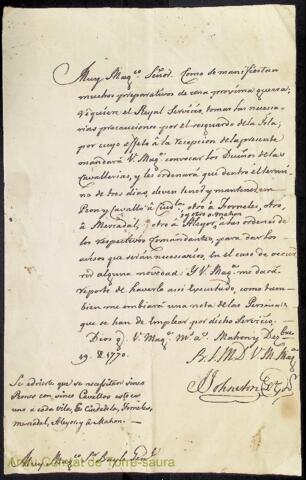 Muy Mag.co Señor. Como se manifiestan
muchos preparativos de una proxima guerra,
requiere el Royal Servicio, tomar las necesa-
rias precauciones por el resguardo de la Isla;
por cuyo effeto à la recepcion de la presente
mandarà V. Mag. convocar los Dueños de las
Cavallerias, y les ordenarà que dentro el termi-
no de tres dias, deven tener y mantener, un
Peon y Cavallo à Ciudla, otro à Fornells, otro
y otro a Mahon
à Mercadal, otro à Alayor, à las ordenes
de los respectivos Comandantes, para dar los
avisos que serán necesarios, en el caso de occur-
rir alguna novedad: Y V. Mag. me darà
reporte de haverlo assi Executado, como tam-
bien me embiarà una nota de las Personas,
que se han de Emplear por dicho Servicio.
Dios g. V. Mag. m.s a.s Mahon y Dez.bre
19. 1770.
B. L. M. D. V. M. Mag.
Johnston
Se advierte que se necesitan cinco
Peones con cinco Cavallos esto es
uno a cada vila, Ciudadela, Fornells,
Mercadal, Alayor, y à Mahon.
Muy Mag.co S.r Bayle Gen.l
Arxiu Comtat de Torre-saura